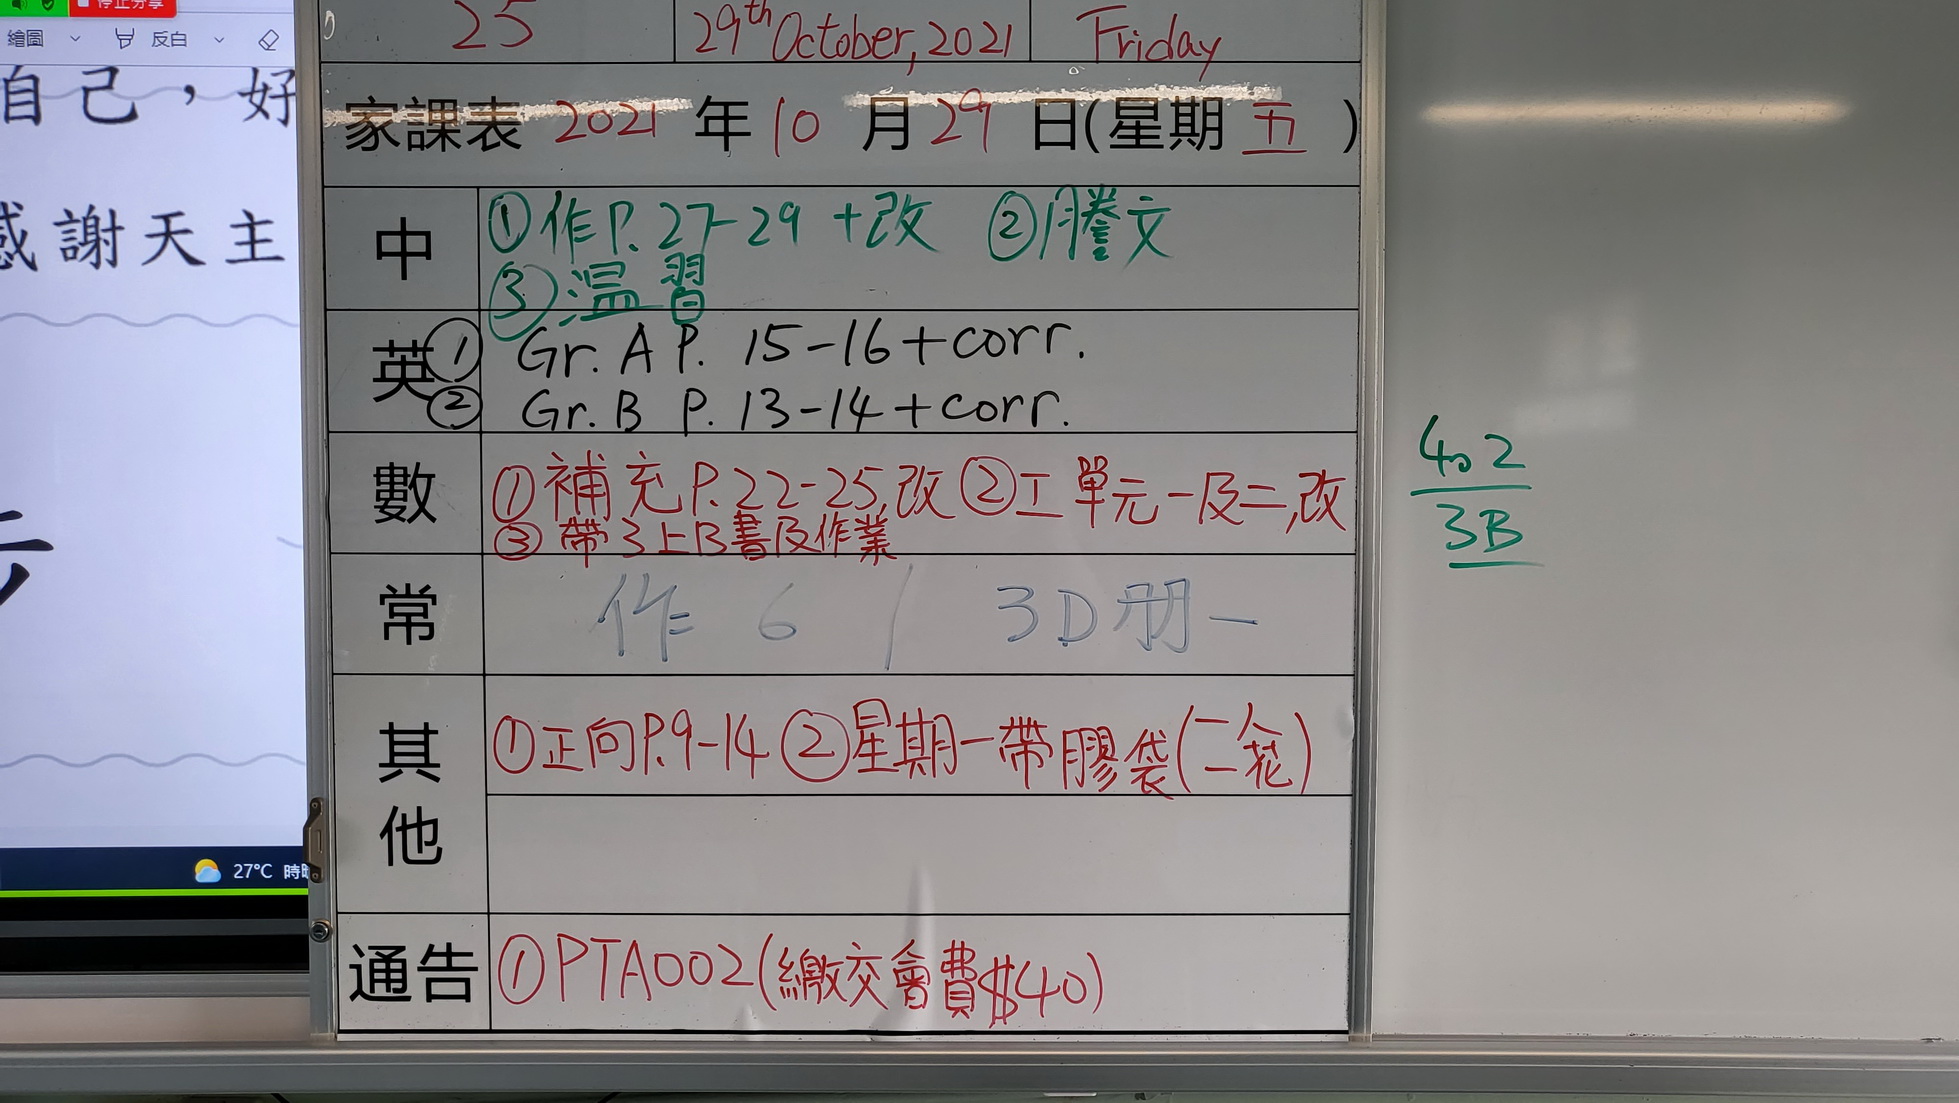 停止分享
繪圖 反白
自己，好
感謝天主
27°C 時
25 29th October, 2021 Friday
家課表 2021 年 10 月 29 日(星期 五 )
中 ①作P.27-29 +改 ②謄文
③温習
英 ① Gr. A P. 15-16+corr.
② Gr. B P. 13-14+corr.
數 ①補充P.22-25,改 ②工單元一及二,改
③帶3上B書及作業
常 作 6 / 3D册一
其他 ①正向P.9-14 ②星期一帶膠袋
通告 ①PTA002(繳交會費$40)
402
3B